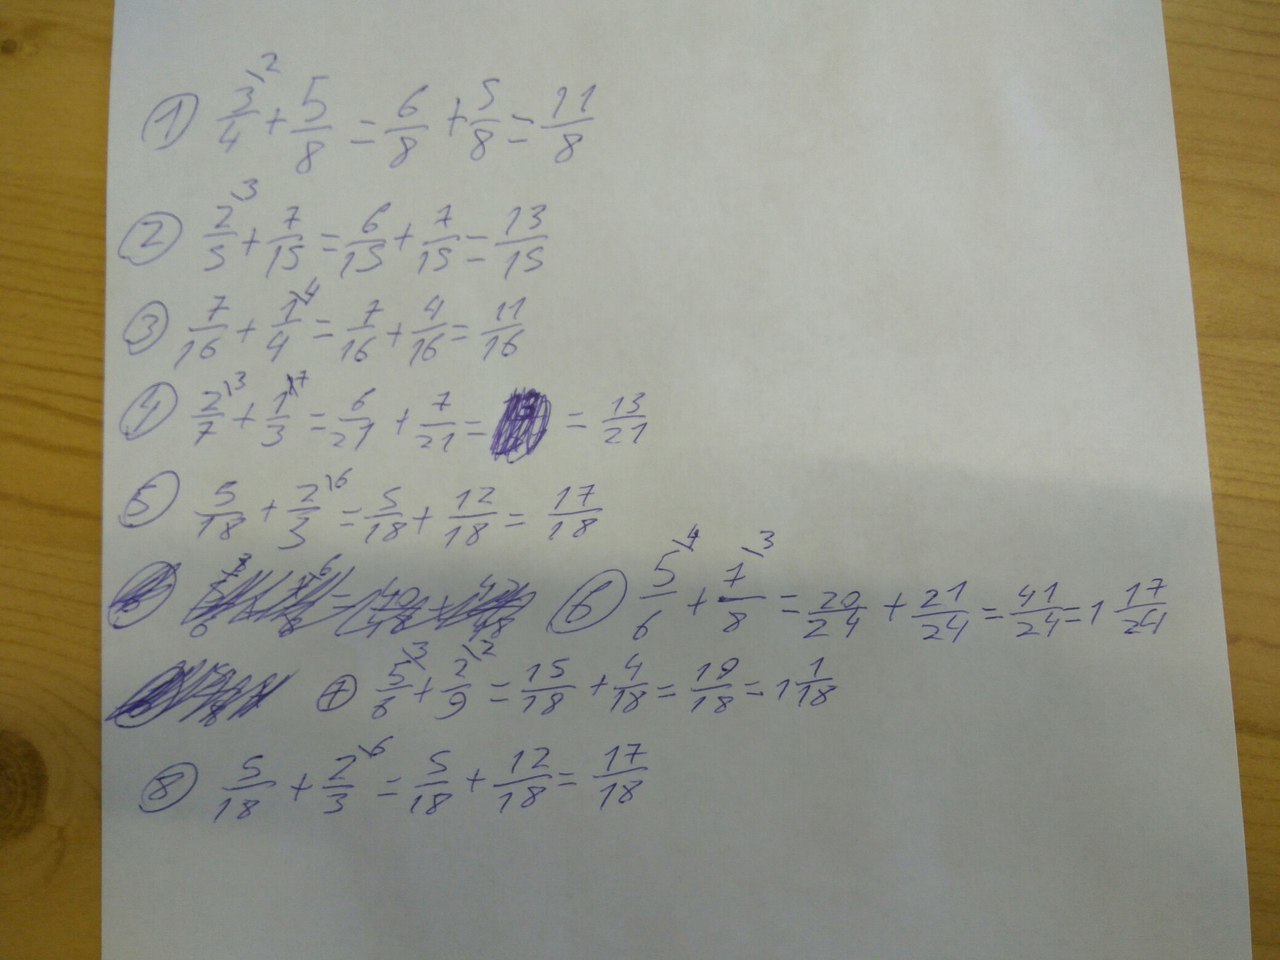 ① 3\2/4 + 5/8 = 6/8 + 5/8 = 11/8
② 2\3/5 + 7/15 = 6/15 + 7/15 = 13/15
③ 7/16 + 1\4/4 = 7/16 + 4/16 = 11/16
④ 2\3/7 + 1\7/3 = 6/21 + 7/21 = = 13/21
⑤ 5/18 + 2\6/3 = 5/18 + 12/18 = 17/18
⑥ 5\4/6 + 7\3/8 = 20/24 + 21/24 = 41/24 = 1 17/24
⑦ 5\3/6 + 2\2/9 = 15/18 + 4/18 = 19/18 = 1 1/18
⑧ 5/18 + 2\6/3 = 5/18 + 12/18 = 17/18